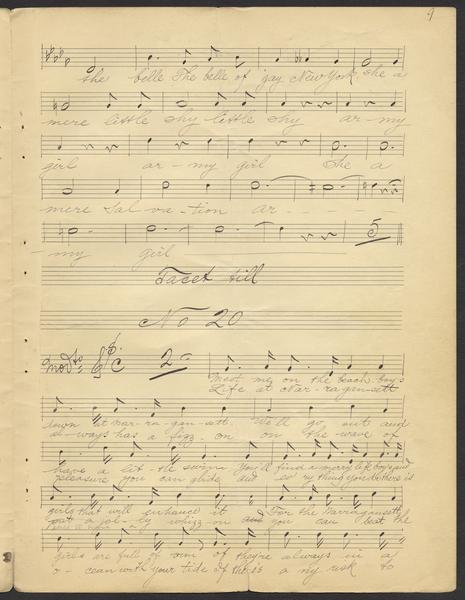 9
she belle The belle of gay New York, she a
mere little shy little shy ar - my
girl ar - my girl She a
mere Sal - va - tion ar - - - -
- my girl
5
Tacet till
No 20
Modto C 2
Meet me on the beach boys
Life at Nar - ra - gan - sett
down at Nar - ra - gan - sett. We'll go out and
al - ways has a fizz - on on the wave of
have a lit - tle swim You'll find a many life boys and
pleasure you can glide and ev'ry thing you do there is
girls that will enhance it For the Narragansett
got a jol - ly whizz - on and you can beat the
girls are full of vim of they're always in a
o - cean with your tide of the a ny risk to